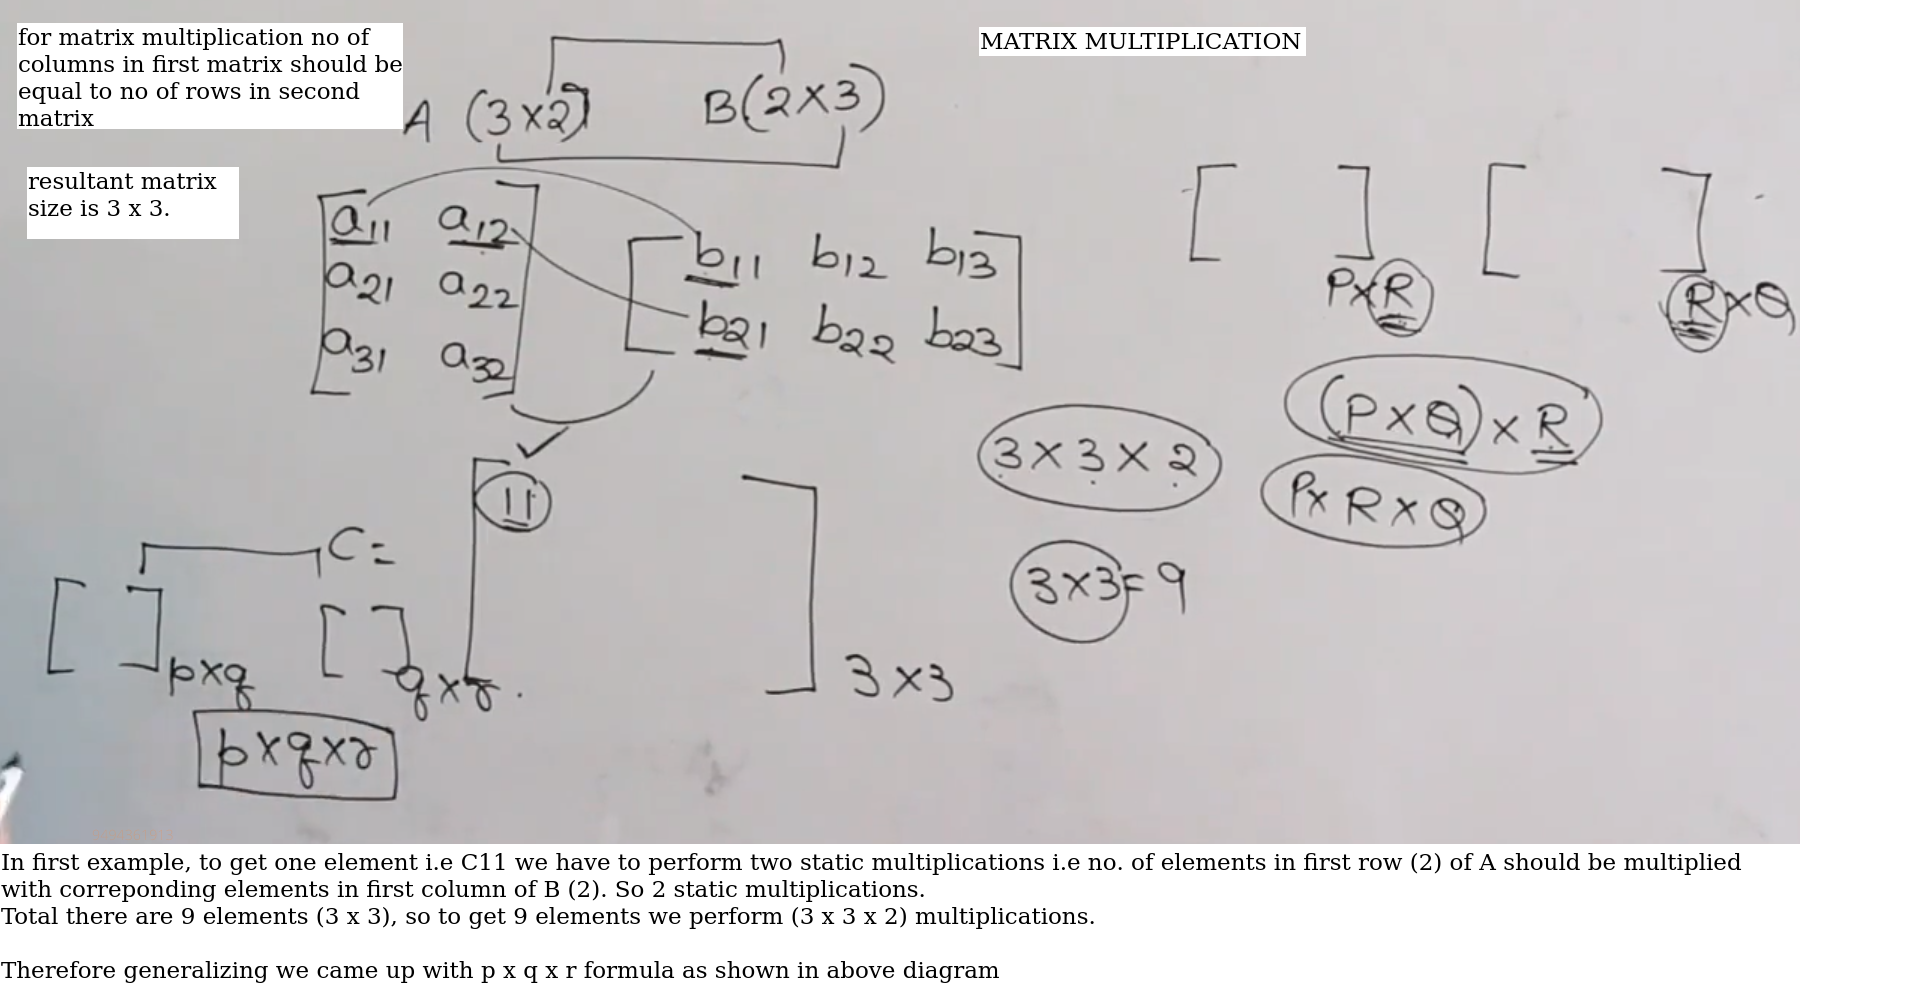 for matrix multiplication no of
columns in first matrix should be
equal to no of rows in second
matrix
MATRIX MULTIPLICATION
A (3×2) B(2×3)
resultant matrix
size is 3 x 3.
a11 a12
a21 a22
a31 a32
b11 b12 b13
b21 b22 b23
P×R R×Q
(P×Q)×R
3×3×2
P×R×Q
11
C=
3×3=9
3×3
p×q q×r.
p×q×r
In first example, to get one element i.e C11 we have to perform two static multiplications i.e no. of elements in first row (2) of A should be multiplied
with correponding elements in first column of B (2). So 2 static multiplications.
Total there are 9 elements (3 x 3), so to get 9 elements we perform (3 x 3 x 2) multiplications.
Therefore generalizing we came up with p x q x r formula as shown in above diagram